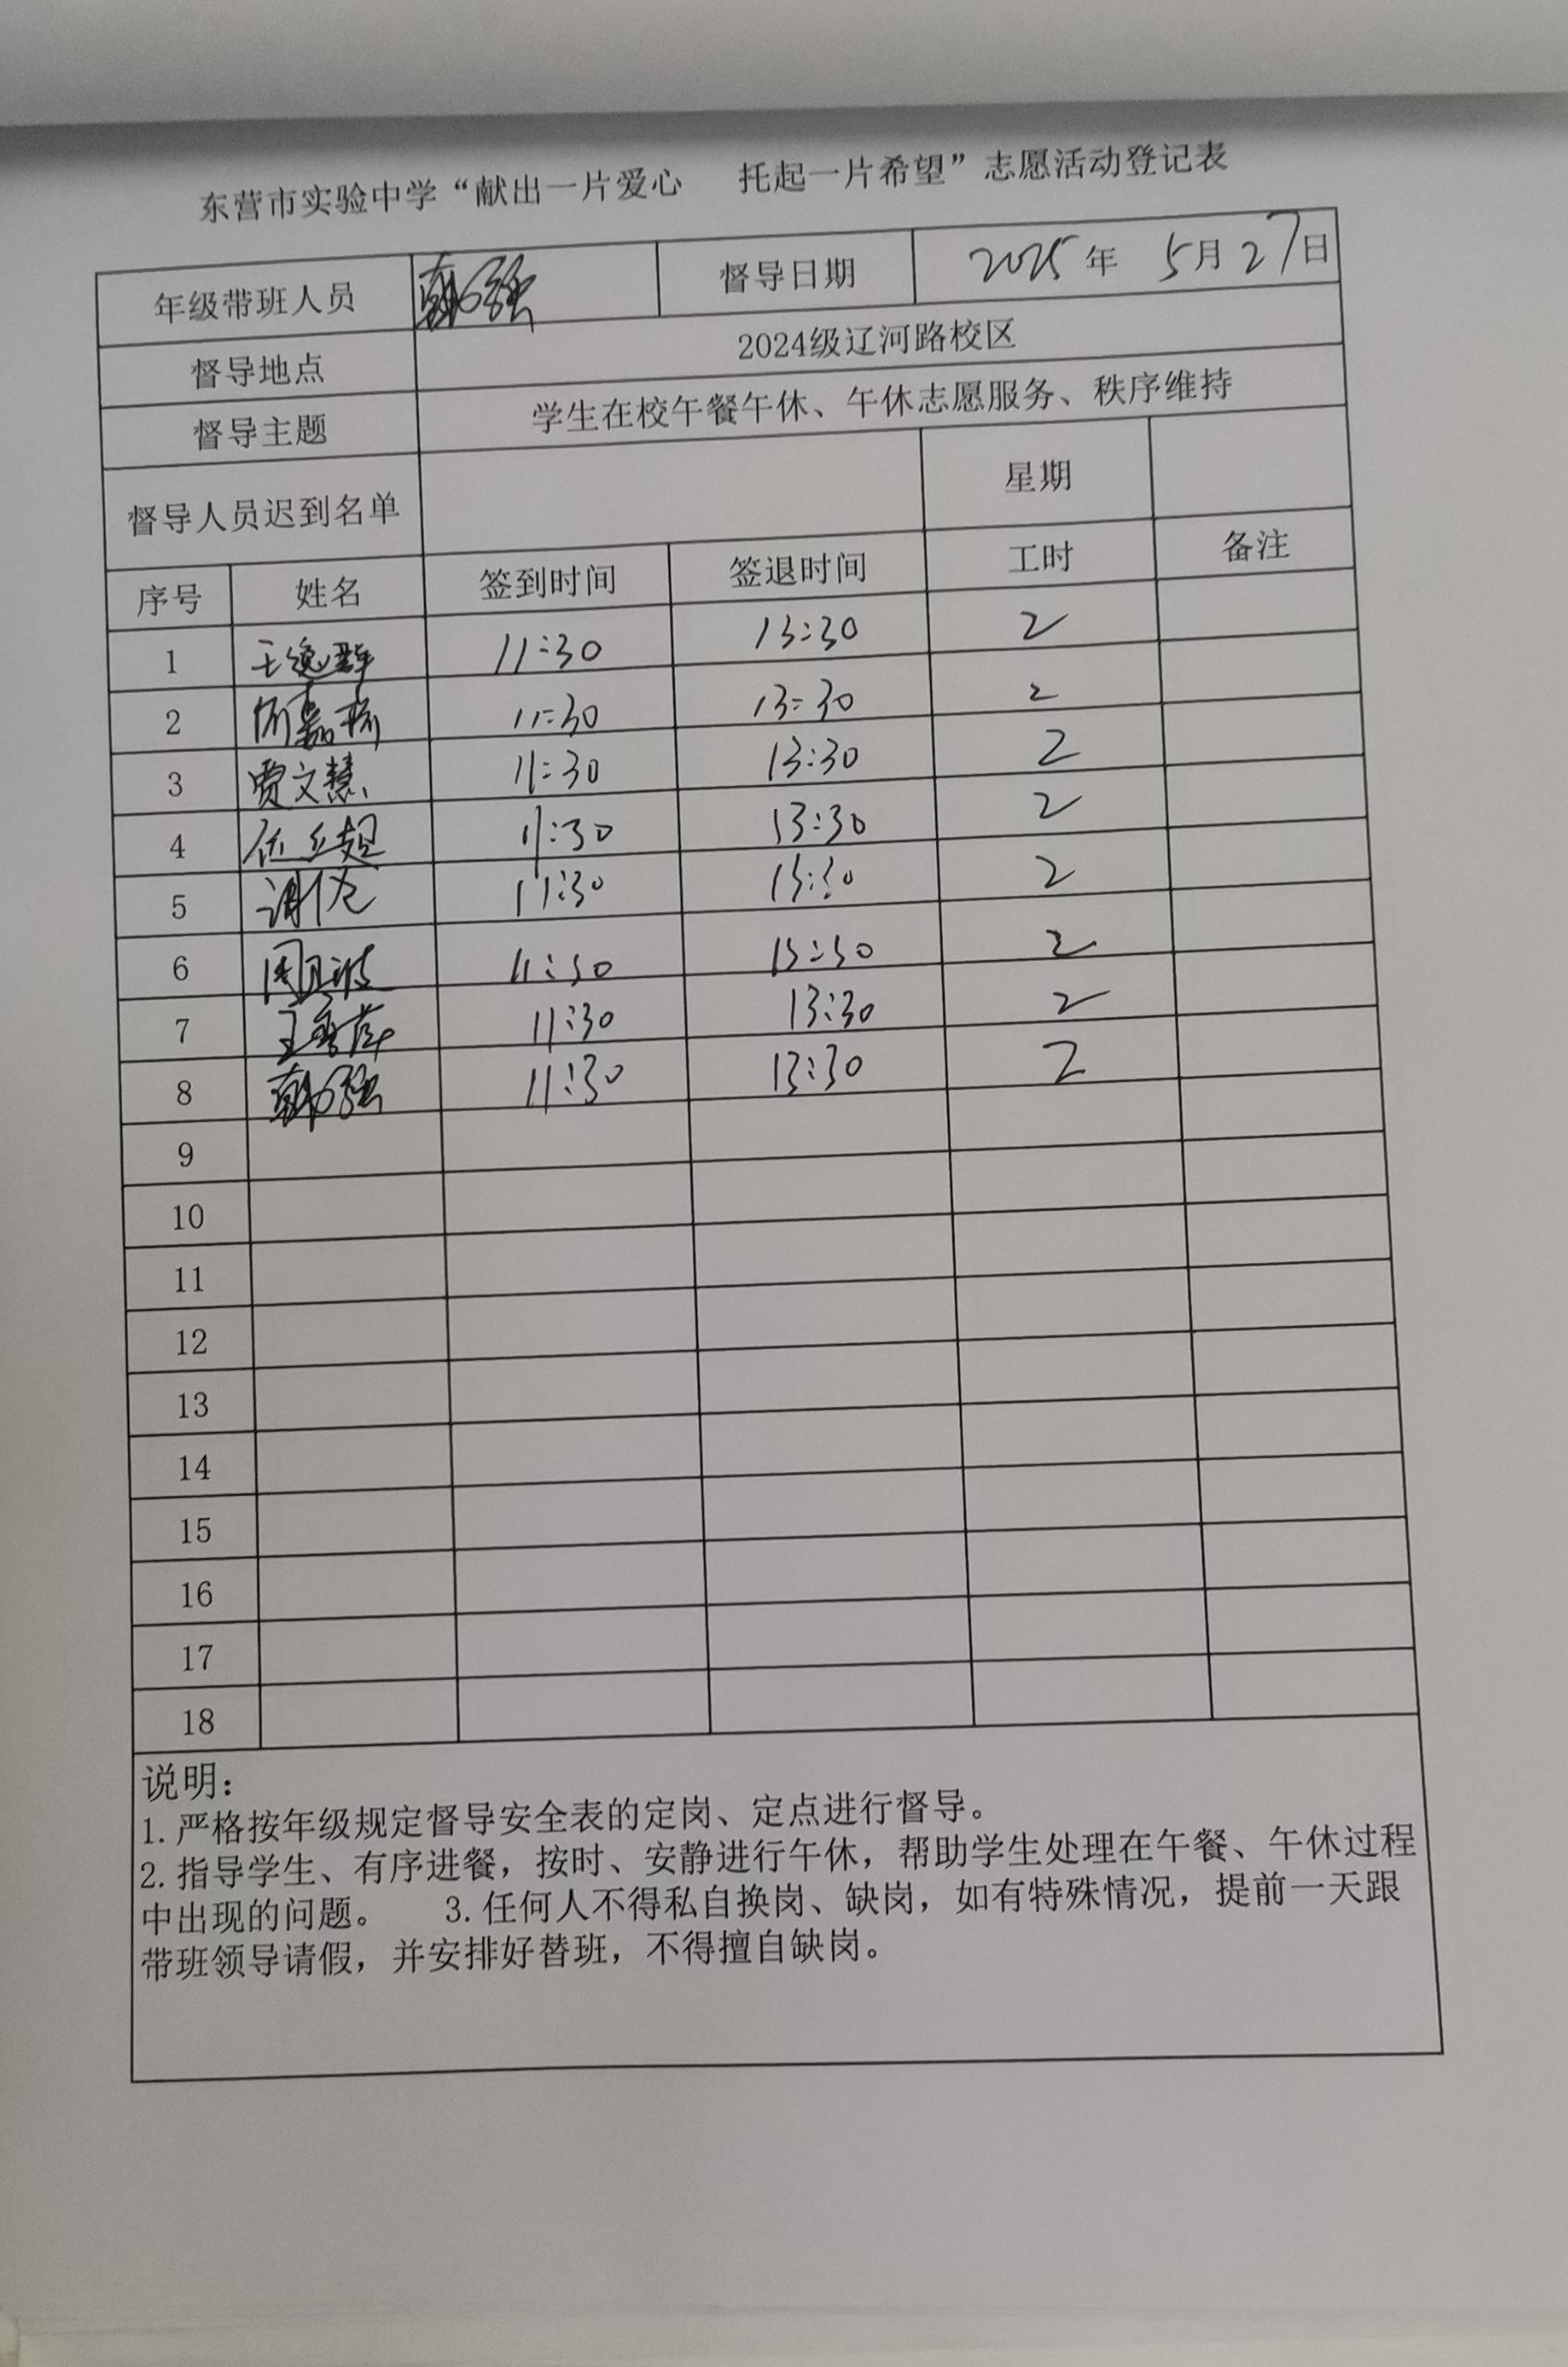 东营市实验中学“献出一片爱心 托起一片希望”志愿活动登记表
年级带班人员 韩强 督导日期 2025年 5月27日
督导地点 2024级辽河路校区
督导主题 学生在校午餐午休、午休志愿服务、秩序维持
督导人员迟到名单 星期
序号 姓名 签到时间 签退时间 工时 备注
1 王逸群 11:30 13:30 2
2 11:30 13:30 2
3 贾文慧 11:30 13:30 2
4 11:30 13:30 2
5 11:30 13:30 2
6 11:30 13:30 2
7 王秀萍 11:30 13:30 2
8 韩强 11:30 13:30 2
9
10
11
12
13
14
15
16
17
18
说明：
1.严格按年级规定督导安全表的定岗、定点进行督导。
2.指导学生、有序进餐，按时、安静进行午休，帮助学生处理在午餐、午休过程
中出现的问题。 3.任何人不得私自换岗、缺岗，如有特殊情况，提前一天跟
带班领导请假，并安排好替班，不得擅自缺岗。